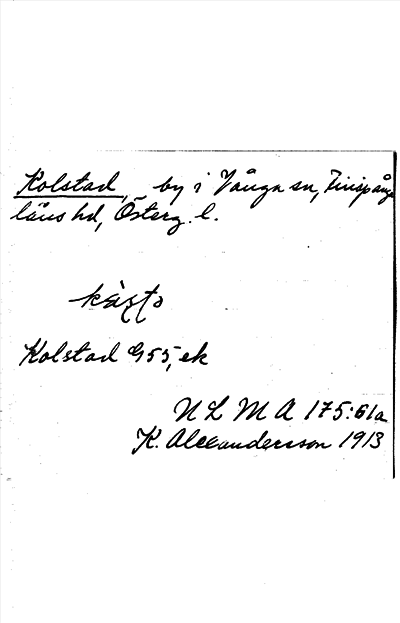 Kolstad, by i Vånga sn, Finspånga
läns hd, Österg. l.
Kolstad G55, ek
N L M A 175:61a
K. Alexandersson 1913